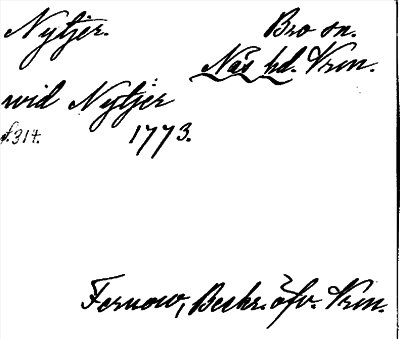 Nytjer. Bro sn.
Näs hd. Vrm.
wid Nytjer
s. 314. 1773.
Fernow, Beskr. öfv. Vrm.